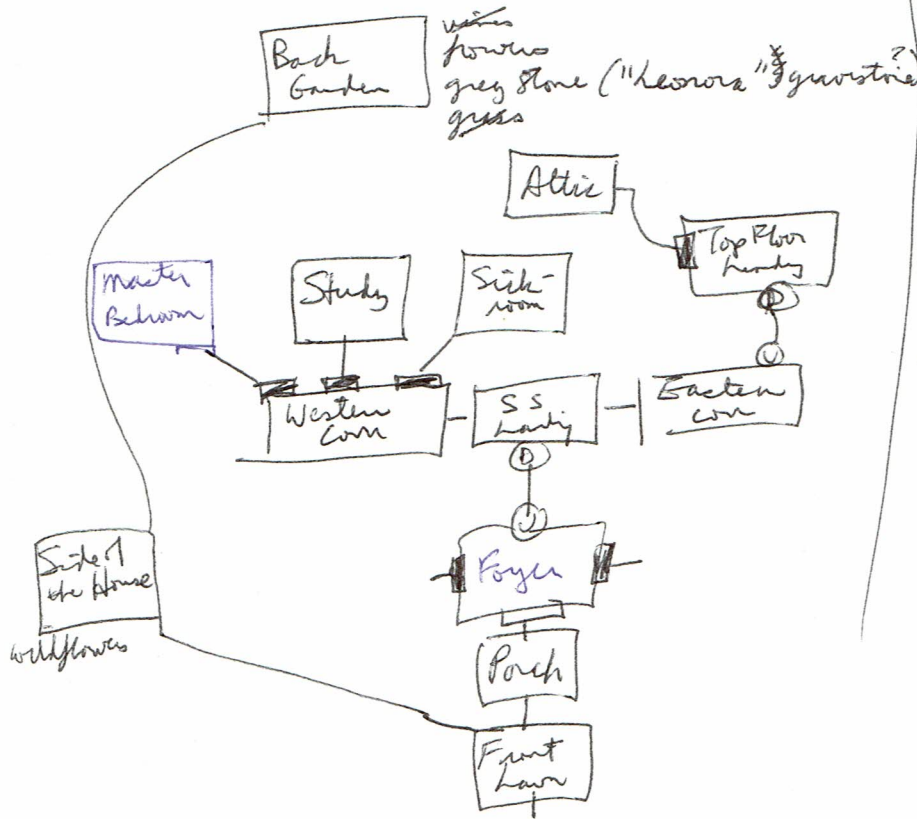 Back
Garden
vines
flowers
grey stone ("Leonora" gravestone?)
grass
Attic
Top Floor
Landing
Master
Bedroom
Study
Sick-
room
Western
Corr
SS
Landing
Eastern
Corr
D
U
D
U
Side of
the House
wildflowers
Foyer
Porch
Front
Lawn